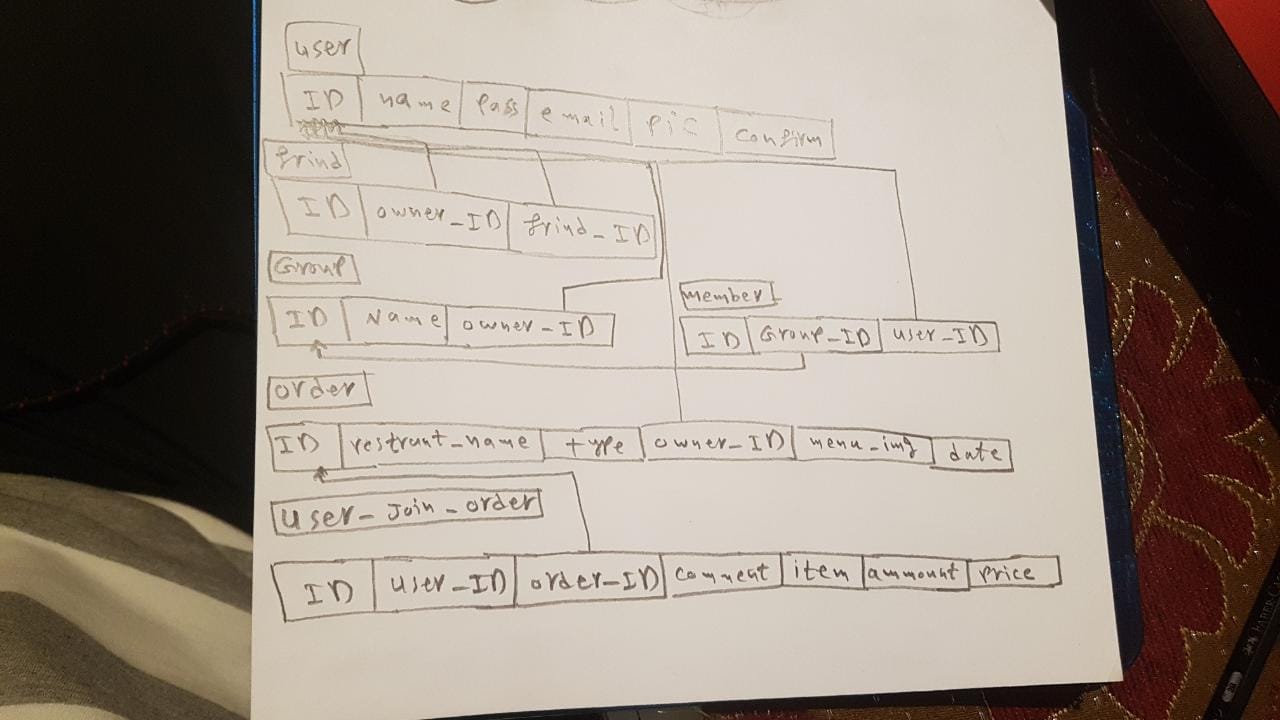 user
ID name pass email pic confirm
frind
ID owner_ID frind_ID
Group
member
ID Name owner-ID
ID Group_ID user_ID
order
ID restrunt_name type owner_ID menu_img date
user_Join_order
ID user_ID order_ID comment item ammount price